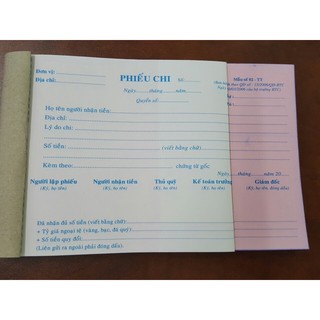 Đơn vị:
Địa chỉ:
PHIẾU CHI
Số
Mẫu số 02 - TT
Ngày tháng năm
Quyển số:
Họ tên người nhận tiền:
Địa chỉ:
Lý do chi:
Số tiền: (viết bằng chữ)
Kèm theo: chứng từ gốc
Ngày tháng năm 20
Người lập phiếu Người nhận tiền Thủ quỹ Kế toán trưởng Giám đốc
(Ký, họ tên) (Ký, họ tên) (Ký, họ tên) (Ký, họ tên) (Ký, họ tên, đóng dấu)
Đã nhận đủ số tiền (viết bằng chữ)
+ Tỷ giá ngoại tệ (vàng, bạc, đá quý):
+ Số tiền quy đổi:
(Liên gửi ra ngoài phải đóng dấu)